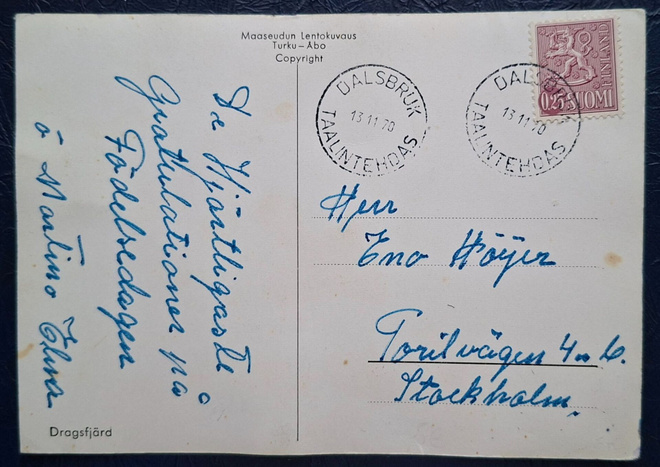 Maaseudun Lentokuvaus
Turku – Åbo
Copyright
De Hjärtligaste
Gratulationer på
Födelsedagen
Dragsfjärd
DALSBRUK
13.11.70
TAALINTEHDAS
DALSBRUK
13.11.70
TAALINTEHDAS
0,25 SUOMI
FINLAND
Herr
Eno Höijer
Torilvägen 4
Stockholm.